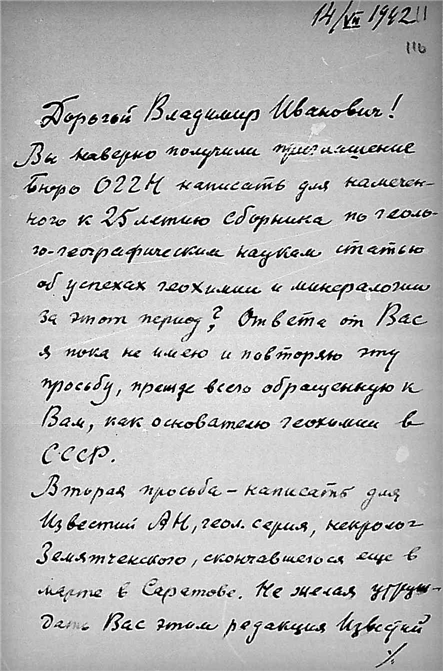 14/VII 1942
116
Дорогой Владимир Иванович!
Вы наверно получили приглашение
Бюро ОГГН написать для намечен-
ного к 25летию сборника по геоло-
го-географическим наукам статью
об успехах геохимии и минералогии
за этот период? Ответа от Вас
я пока не имею и повторяю эту
просьбу, прежде всего обращенную к
Вам, как основателю геохимии в
СССР.
Вторая просьба – написать для
Известий АН, геол. серия, некролог
Земятченского, скончавшегося еще в
марте в Саратове. Не желая утруж-
дать Вас этим редакция Известий
·/.